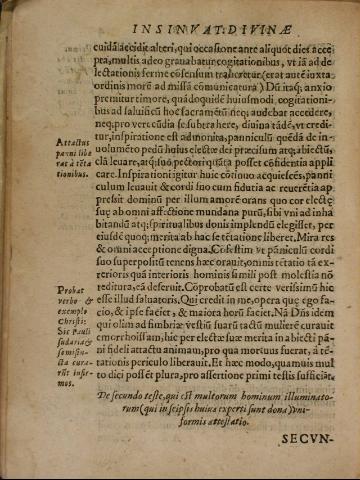 INSINVAT: DIVINÆ
cuidā accidit alteri, qui occasione ante aliquot dies acce
pta, multis adeo grauabatur cogitationibus, vt iā ad de
lectationis ferme cōsensum traheretur (erat autē iuxta
ordinis morē ad missā cōmunicatura) Dū itaq; anxio
premitur timore, quādoquidē huiusmodi cogitationi-
bus ad saluificū hoc sacramētū neq; audebat accedere,
neq; pro verecūdia se subtrahere, diuina tādē, vt credi-
tur, inspiratione est admonita, panniculū quēdā de in
Attactus
panni libe
rat à tēta
tionibus.
uolumēto pedū huius electæ dei præcisum atq; abiectū,
clā leuare, atq; suo pectori
posset cōfidentia appli
care. Inspirationi igitur huic cōtinuo acquiescēs, panni
culum leuauit & cordi suo cum fiducia ac reuerētia ap
pressit dominū per illum amorē orans quo cor electę
suę ab omni affectione mundana purū, sibi vni ad inha
bitandū atq; spiritualibus donis implendū elegisset, per
eiusdē quoq; merita ab hac se tētatione liberet. Mira res
& omni acceptione digna. Cōfestim vt pāniculū cordi
suo superpositū tenens hæc orauit, omnis tētatio tā ex-
terioris quā interioris hominis simili post molestia nō
Probat
verbo &
exemplo
Christi:
Sic Pauli
sudaria &
semicin-
cta cura-
rūt infir-
mos.
reditura, eā deseruit. Cōprobatū est certe verissimū hic
esse illud saluatoris. Qui credit in me, opera quę ego fa
cio, & ipse faciet, & maiora horū faciet. Nā Dn̄s idem
qui olim ad fimbriæ vestiū suarū tactū mulierē curauit
emorrhoissam, hic per electæ suæ merita in abiecti pā-
ni fideli attactu animam, pro qua mortuus fuerat, à tē-
tationis periculo liberauit. Et hæc modo, quamuis mul
to dici possēt plura, pro assertione primi testis sufficiāt.
De secundo teste, qui est multorum hominum illuminato-
rum (qui in seipsis huius experti sunt dona) vni-
formis attestatio.
SECVN-